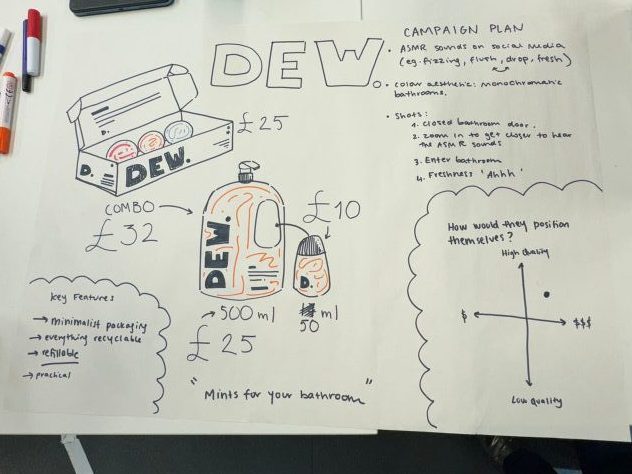 DEW.
CAMPAIGN PLAN
• ASMR sounds on social media
(eg. fizzing, flush, drop, fresh)
• colour aesthetic: monochromatic
bathrooms.
• shots:
1. closed bathroom door.
2. zoom in to get closer to hear
the ASMR sounds
3. Enter bathroom
4. Freshness 'Ahhh'
£25
D.
DEW.
COMBO →
£32
DEW.
£10
D.
→ 500 ml
50 ml
£25
Key Features
→ minimalist packaging
→ everything recyclable
→ refillable
→ practical
"Mints for your bathroom"
How would they position
themselves?
High Quality
$
$$$
Low Quality